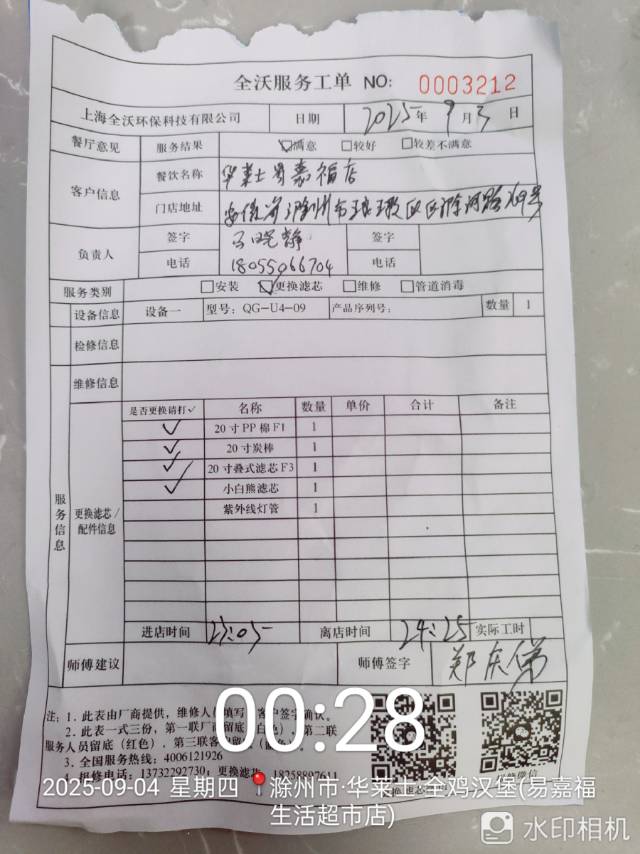 全沃服务工单 NO: 0003212
上海全沃环保科技有限公司 日期 2025年 9月 3日
餐厅意见 服务结果 ☑满意 □较好 □较差不满意
客户信息 餐饮名称 华莱士易嘉福店
门店地址
负责人 签字 签字
电话 18055066704 电话
服务类别 □安装 ☑更换滤芯 □维修 □管道消毒
设备信息 设备一 型号: QG-U4-09 产品序列号: 数量 1
检修信息
维修信息
服务信息
更换滤芯/配件信息
是否更换请打✓ 名称 数量 单价 合计 备注
✓ 20寸PP棉F1 1
✓ 20寸炭棒 1
✓ 20寸叠式滤芯F3 1
✓ 小白熊滤芯 1
紫外线灯管 1
进店时间 23:05 离店时间 24:25 实际工时
师傅建议 师傅签字
注: 1. 此表由厂商提供，维修人 填写 客户签字确认。
2. 此表一式三份，第一联厂 留底 白色 第二联
服务人员留底（红色），第三联客
3. 全国服务热线: 4006121926
4. 报修电话: 13732292730; 更换滤芯
00:28
2025-09-04 星期四 滁州市·华莱士·全鸡汉堡(易嘉福
生活超市店)
水印相机